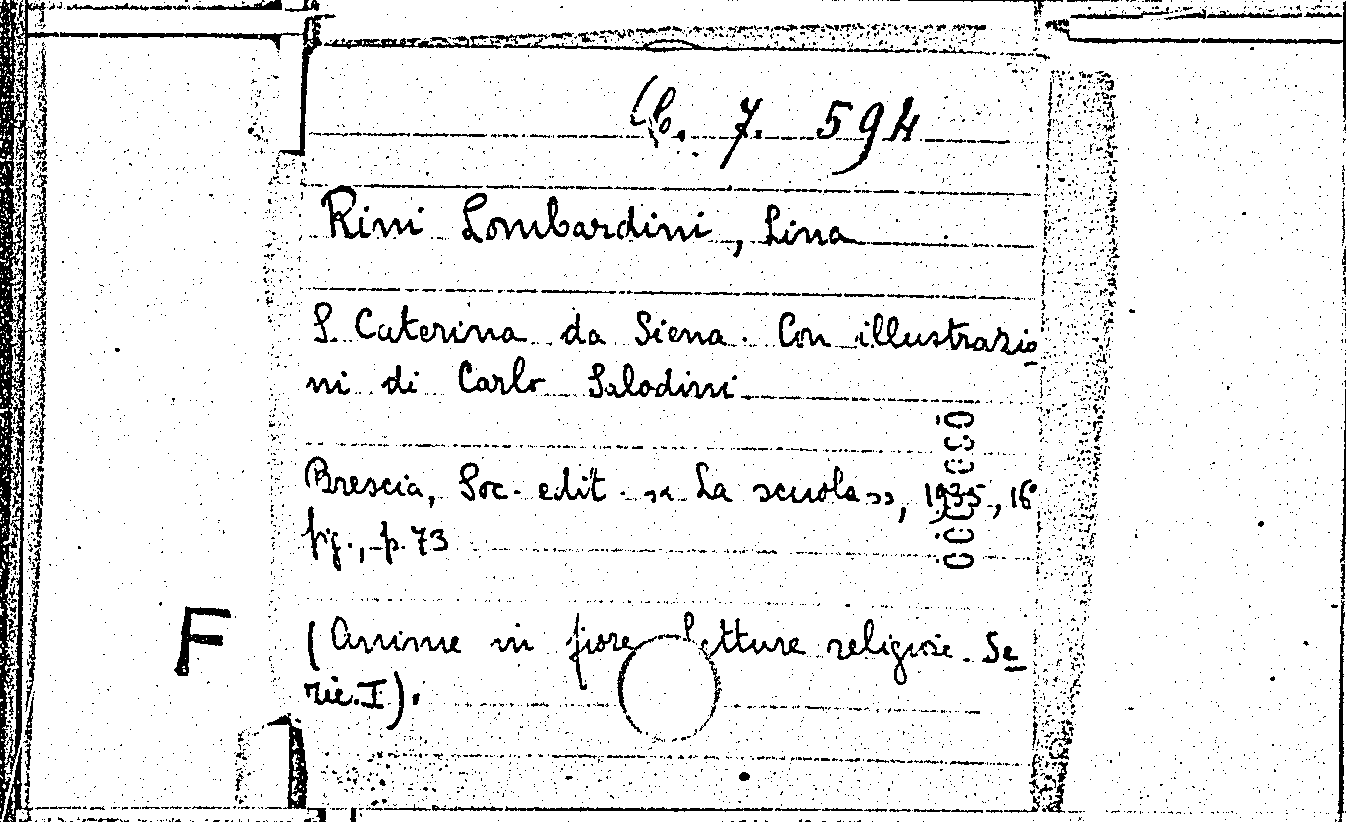 7. 594
Rini Lombardini, Lina
S. Caterina da Siena. Con illustrazio
ni di Carlo Salodini
Brescia, Soc. edit. «La scuola», 1935, 16°
fig., p. 73
F
(Anime in fiore Letture religiose. Se
rie I).